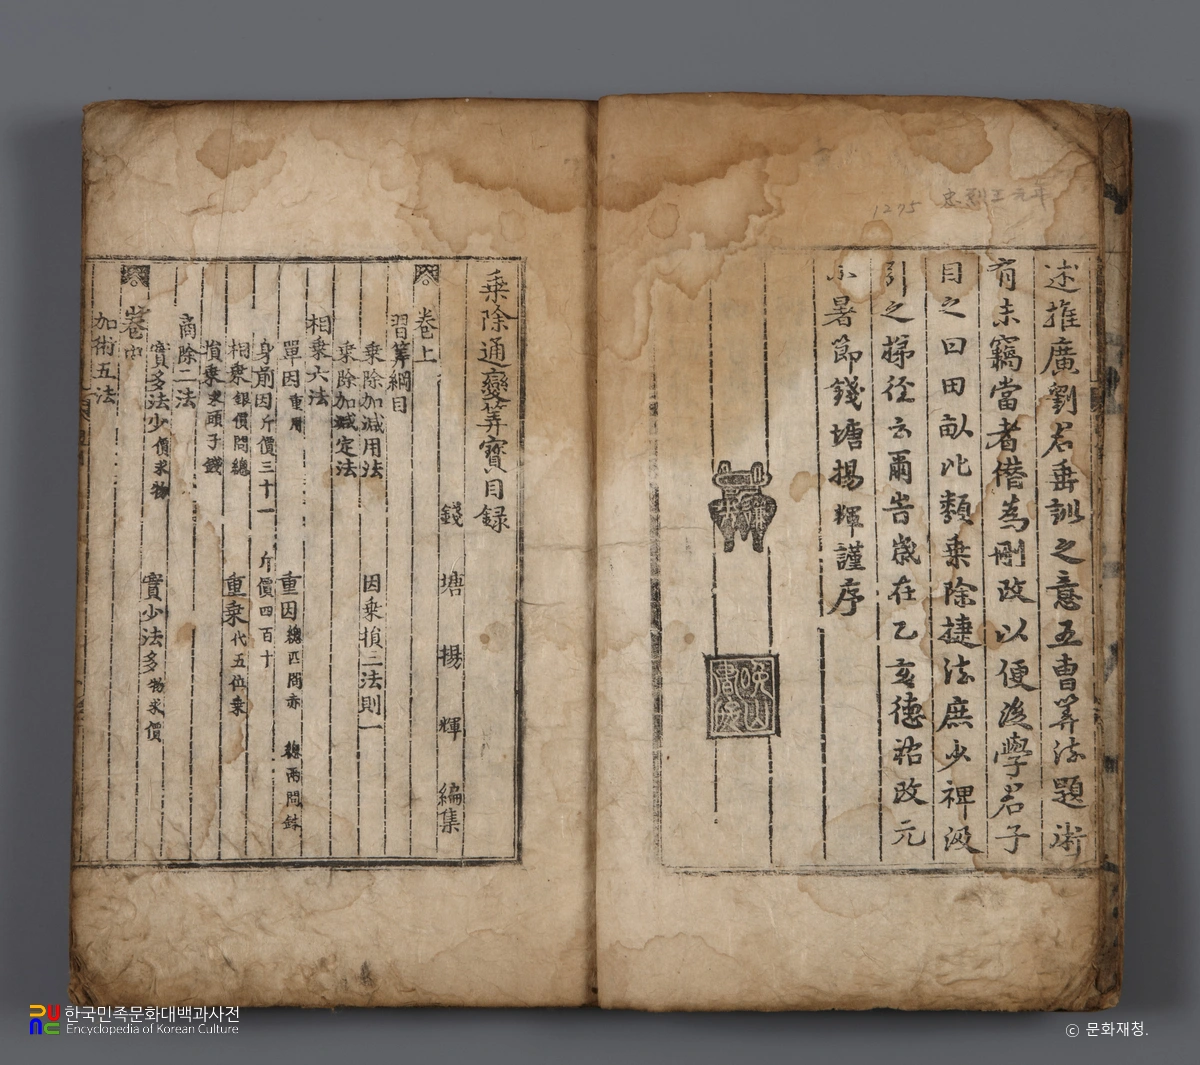 1275 忠烈王元年
述推廣劉君垂訓之意五曹筭法題術
有未竊當者僭為刪改以便後學君子
目之曰田畝比類乗除捷法庶少裨汲
引之梯径云爾告歲在乙亥德祐改元
小暑節錢塘揚輝謹序
乗除通變筭寶目録
錢塘揚輝編集
卷上
習筭綱目
乗除加減用法 因乗損三法則一
乗除加減定法
相乗六法
單因重用 重因總匹問赤 總兩問銖
身前因斤價三十一 斤價四百十
相乗銀價問總 重乗代五位乗
損乗求頭子錢
商除二法
實多法少價求物 實少法多物求價
卷中
加術五法
한국민족문화대백과사전
Encyclopedia of Korean Culture
© 문화재청.